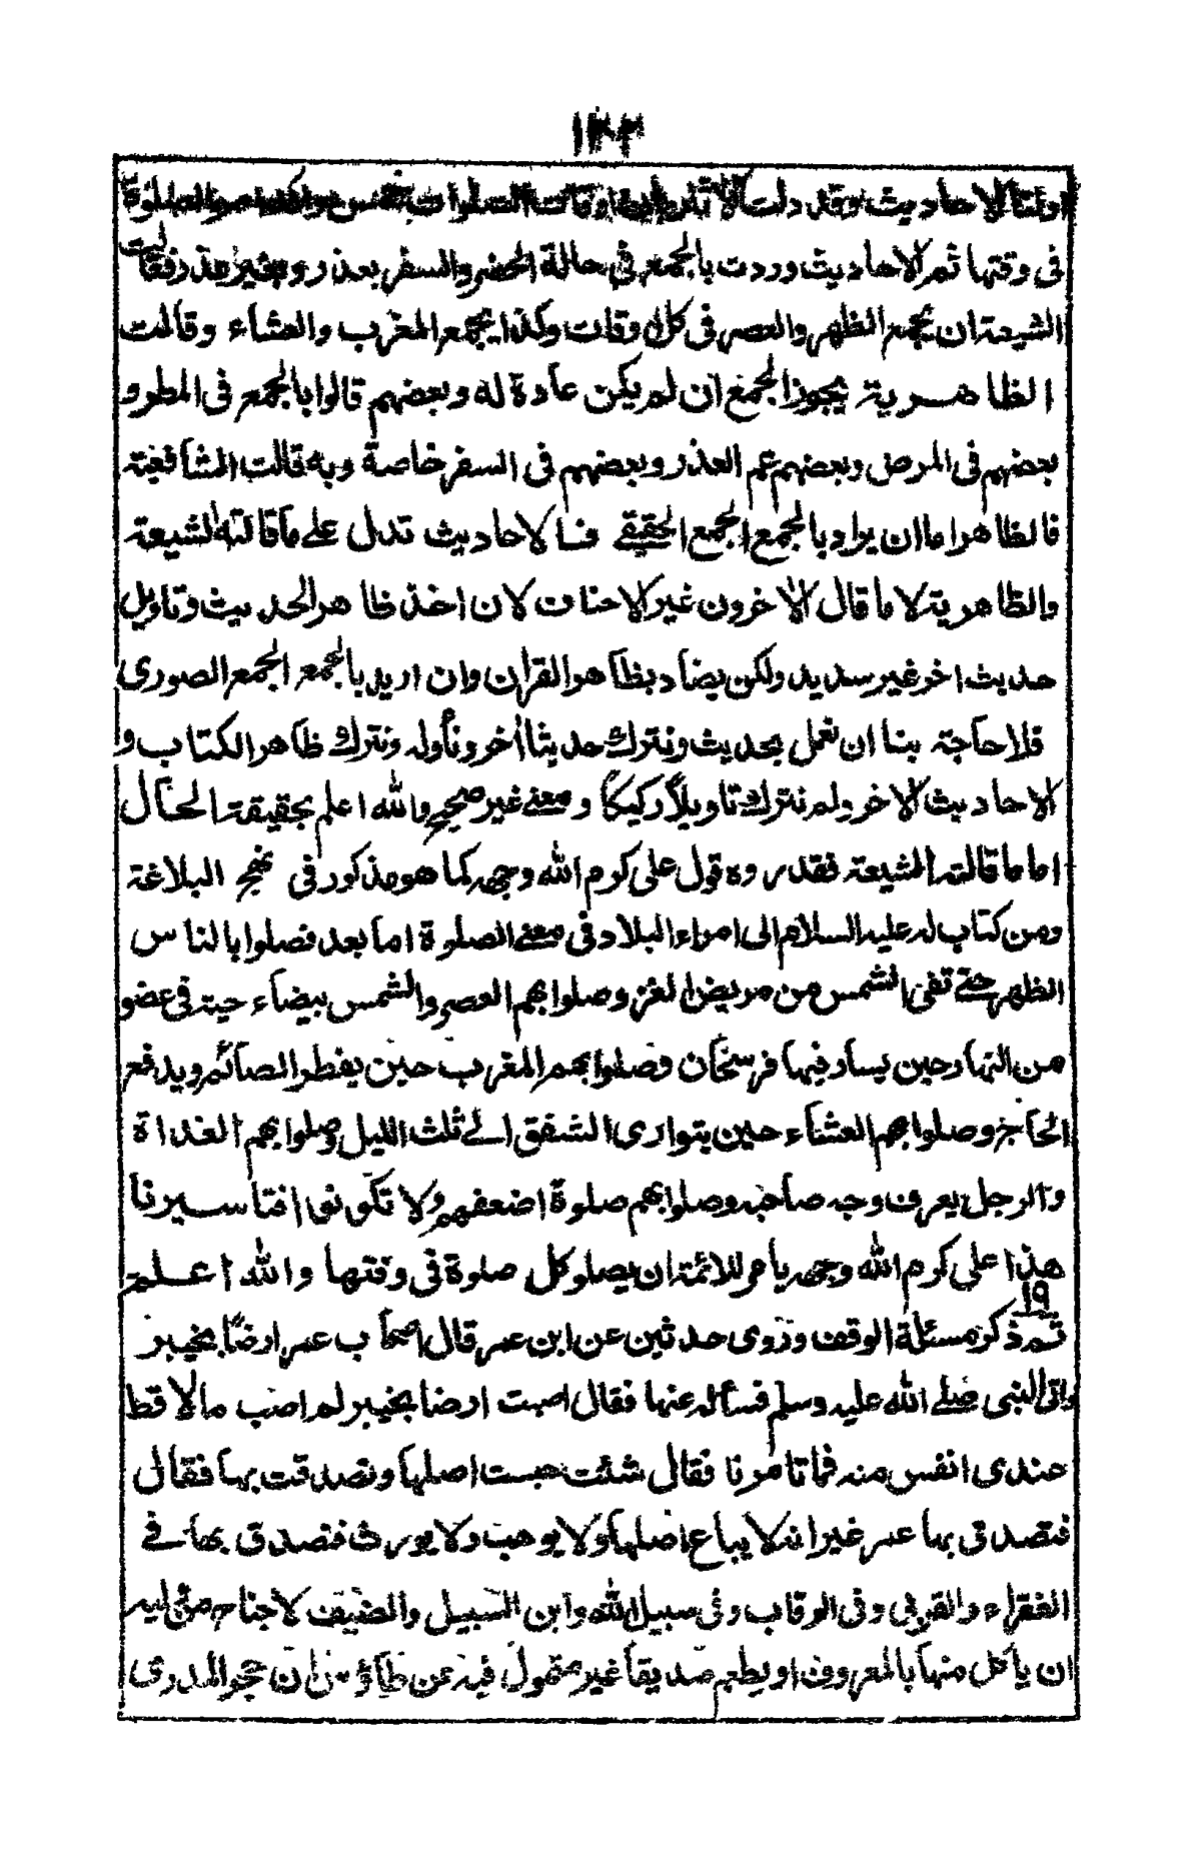 ١٣٣
الاحاديث وقد دلت
فى وقتها ثم الاحاديث وردت بالجمع فى حالة الحضر والسفر بعذر وبغير عذر فقالت
الشيعة ان يجمع الظهر والعصر فى كل اوقات وكذا يجمع المغرب والعشاء وقالت
الظاهرية يجوز الجمع ان لم يكن عادة له وبعضهم قالوا بالجمع فى المطر و
بعضهم فى المرض وبعضهم عم العذر وبعضهم فى السفر خاصة وبه قالت الشافعية
فالظاهر اما ان يراد بالجمع الجمع الحقيقى فالاحاديث تدل على ما قالته الشيعة
والظاهرية لا ما قال الاخرون غير الاحناف لان اخذ ظاهر الحديث وتاويل
حديث اخر غير سديد ولكن يضاد بظاهر القران وان اريد بالجمع الجمع الصورى
فلا حاجة بنا ان نعمل بحديث ونترك حديثا اخر ونأوله ونترك ظاهر الكتاب و
الاحاديث الاخر ولم نترك تاويلاً ركيكاً ومعنى غير صحيح والله اعلم بحقيقة الحال
اما ما قالته الشيعة فقد رده قول على كرم الله وجهه كما هو مذكور فى نهج البلاغة
ومن كتاب له عليه السلام الى امراء البلاد فى معنى الصلوة اما بعد فصلوا بالناس
الظهر حتى تفئ الشمس من مربض الغنز وصلوا بهم العصر والشمس بيضاء حية فى عضو
من النهار حين يسار فيها فرسخان وصلوا بهم المغرب حين يفطر الصائم ويدفع
الحاج وصلوا بهم العشاء حين يتوارى الشفق الى ثلث الليل وصلوا بهم الغداة
والرجل يعرف وجه صاحبه وصلوا بهم صلوة اضعفهم ولا تكونوا فتا سيرنا
هذا على كرم الله وجهه يامر للائمة ان يصلو كل صلوة فى وقتها والله اعلم
١٩
ثم ذكر مسئلة الوقف وروى حدثين عن ابن عمر قال اصاب عمر ارضًا بخيبر
واتى النبى صلى الله عليه وسلم فسأله عنها فقال اصبت ارضا بخيبر لم اصب مالا قط
عندى انفس منه فما تامرنا فقال شئت حبست اصلها وتصدقت بها فقال
فتصدق بها عمر غير انه لا يباع اصلها ولا يوهب ولا يورث فتصدق بها فى
الفقراء والقربى وفى الرقاب وفى سبيل الله وابن السبيل والضيف لا جناح من وليه
ان يأكل منها بالمعروف او يطعم صديقا غير متمول فيه عن طاؤس ان حجر المدرى